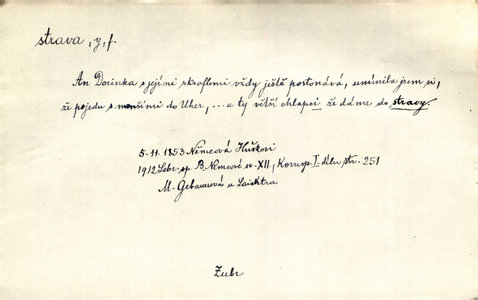 strava, y, f.
An Dorinka s jejími skroflemi vždy ještě postonává, umínila jsem si,
že pojedu s menšími do Uher, ... a ty větší chlapci že dáme do stravy.
5. 11. 1853 Němcová Huškovi
1912 Sebr. sp. B. Němcové sv. XII., Koresp. I. dílu str. 251
M. Gebauerová u Laichtra
Zubr